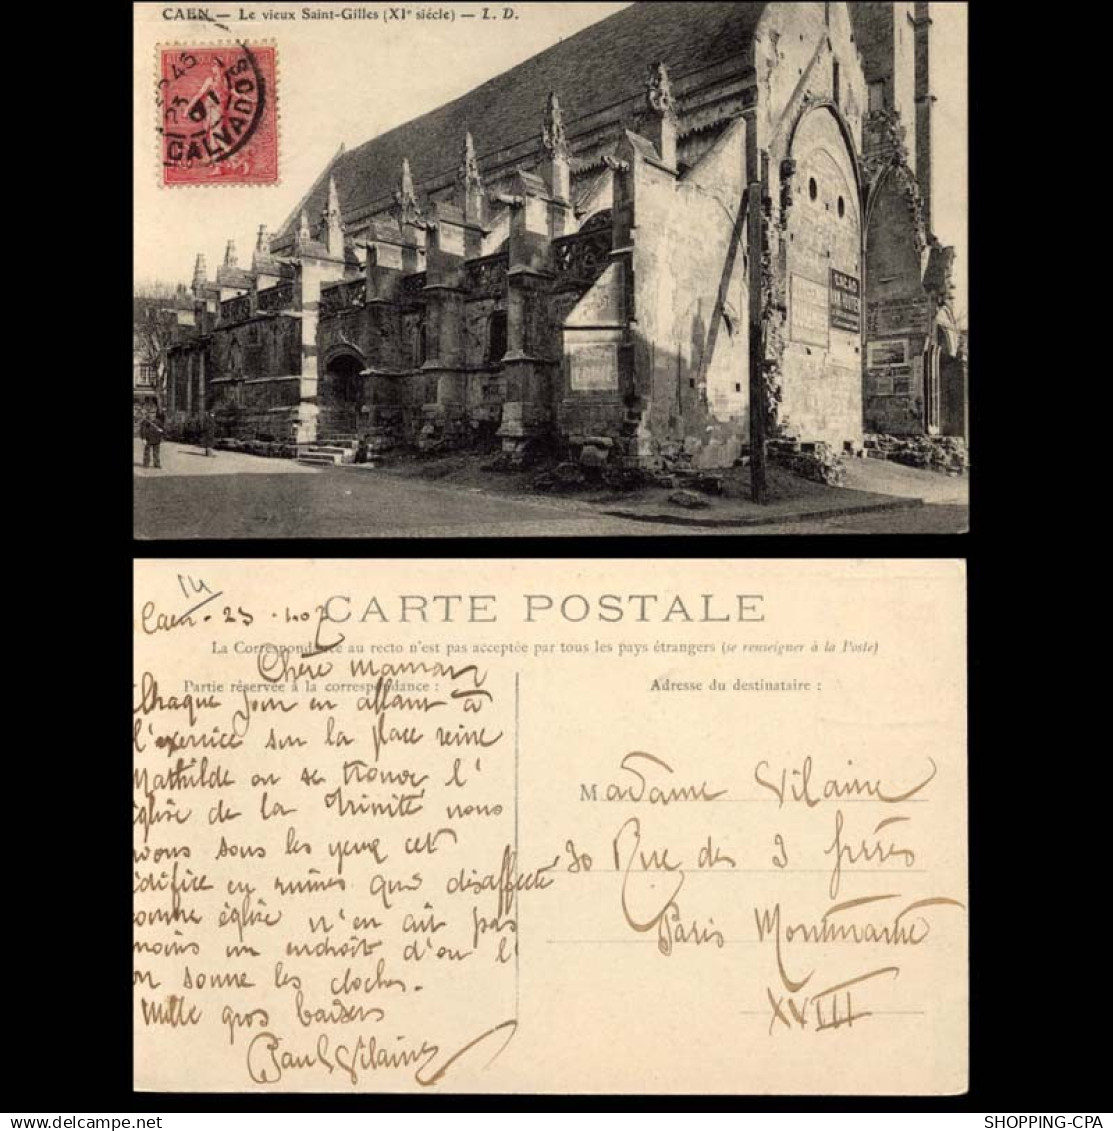 CAEN. — Le vieux Saint-Gilles (XIe siècle) — L. D.
CALVADOS
14
CARTE POSTALE
Caen - 23
La Correspondance au recto n'est pas acceptée par tous les pays étrangers (se renseigner à la Poste)
Chère maman
Partie réservée à la correspondance :
Adresse du destinataire :
Chaque jour en allant à
l'exercice sur la place reine
Mathilde ou se trouve l'
église de la Trinité nous
avons sous les yeux cet
édifice en ruines qui désaffecté
comme église n'en ait pas
moins un endroit d'ou l'
on sonne les cloches.
Mille gros baisers
Paul Vilaine
Madame Vilaine
30 Rue des 3 frères
Paris Montmartre
XVIII
SHOPPING-CPA